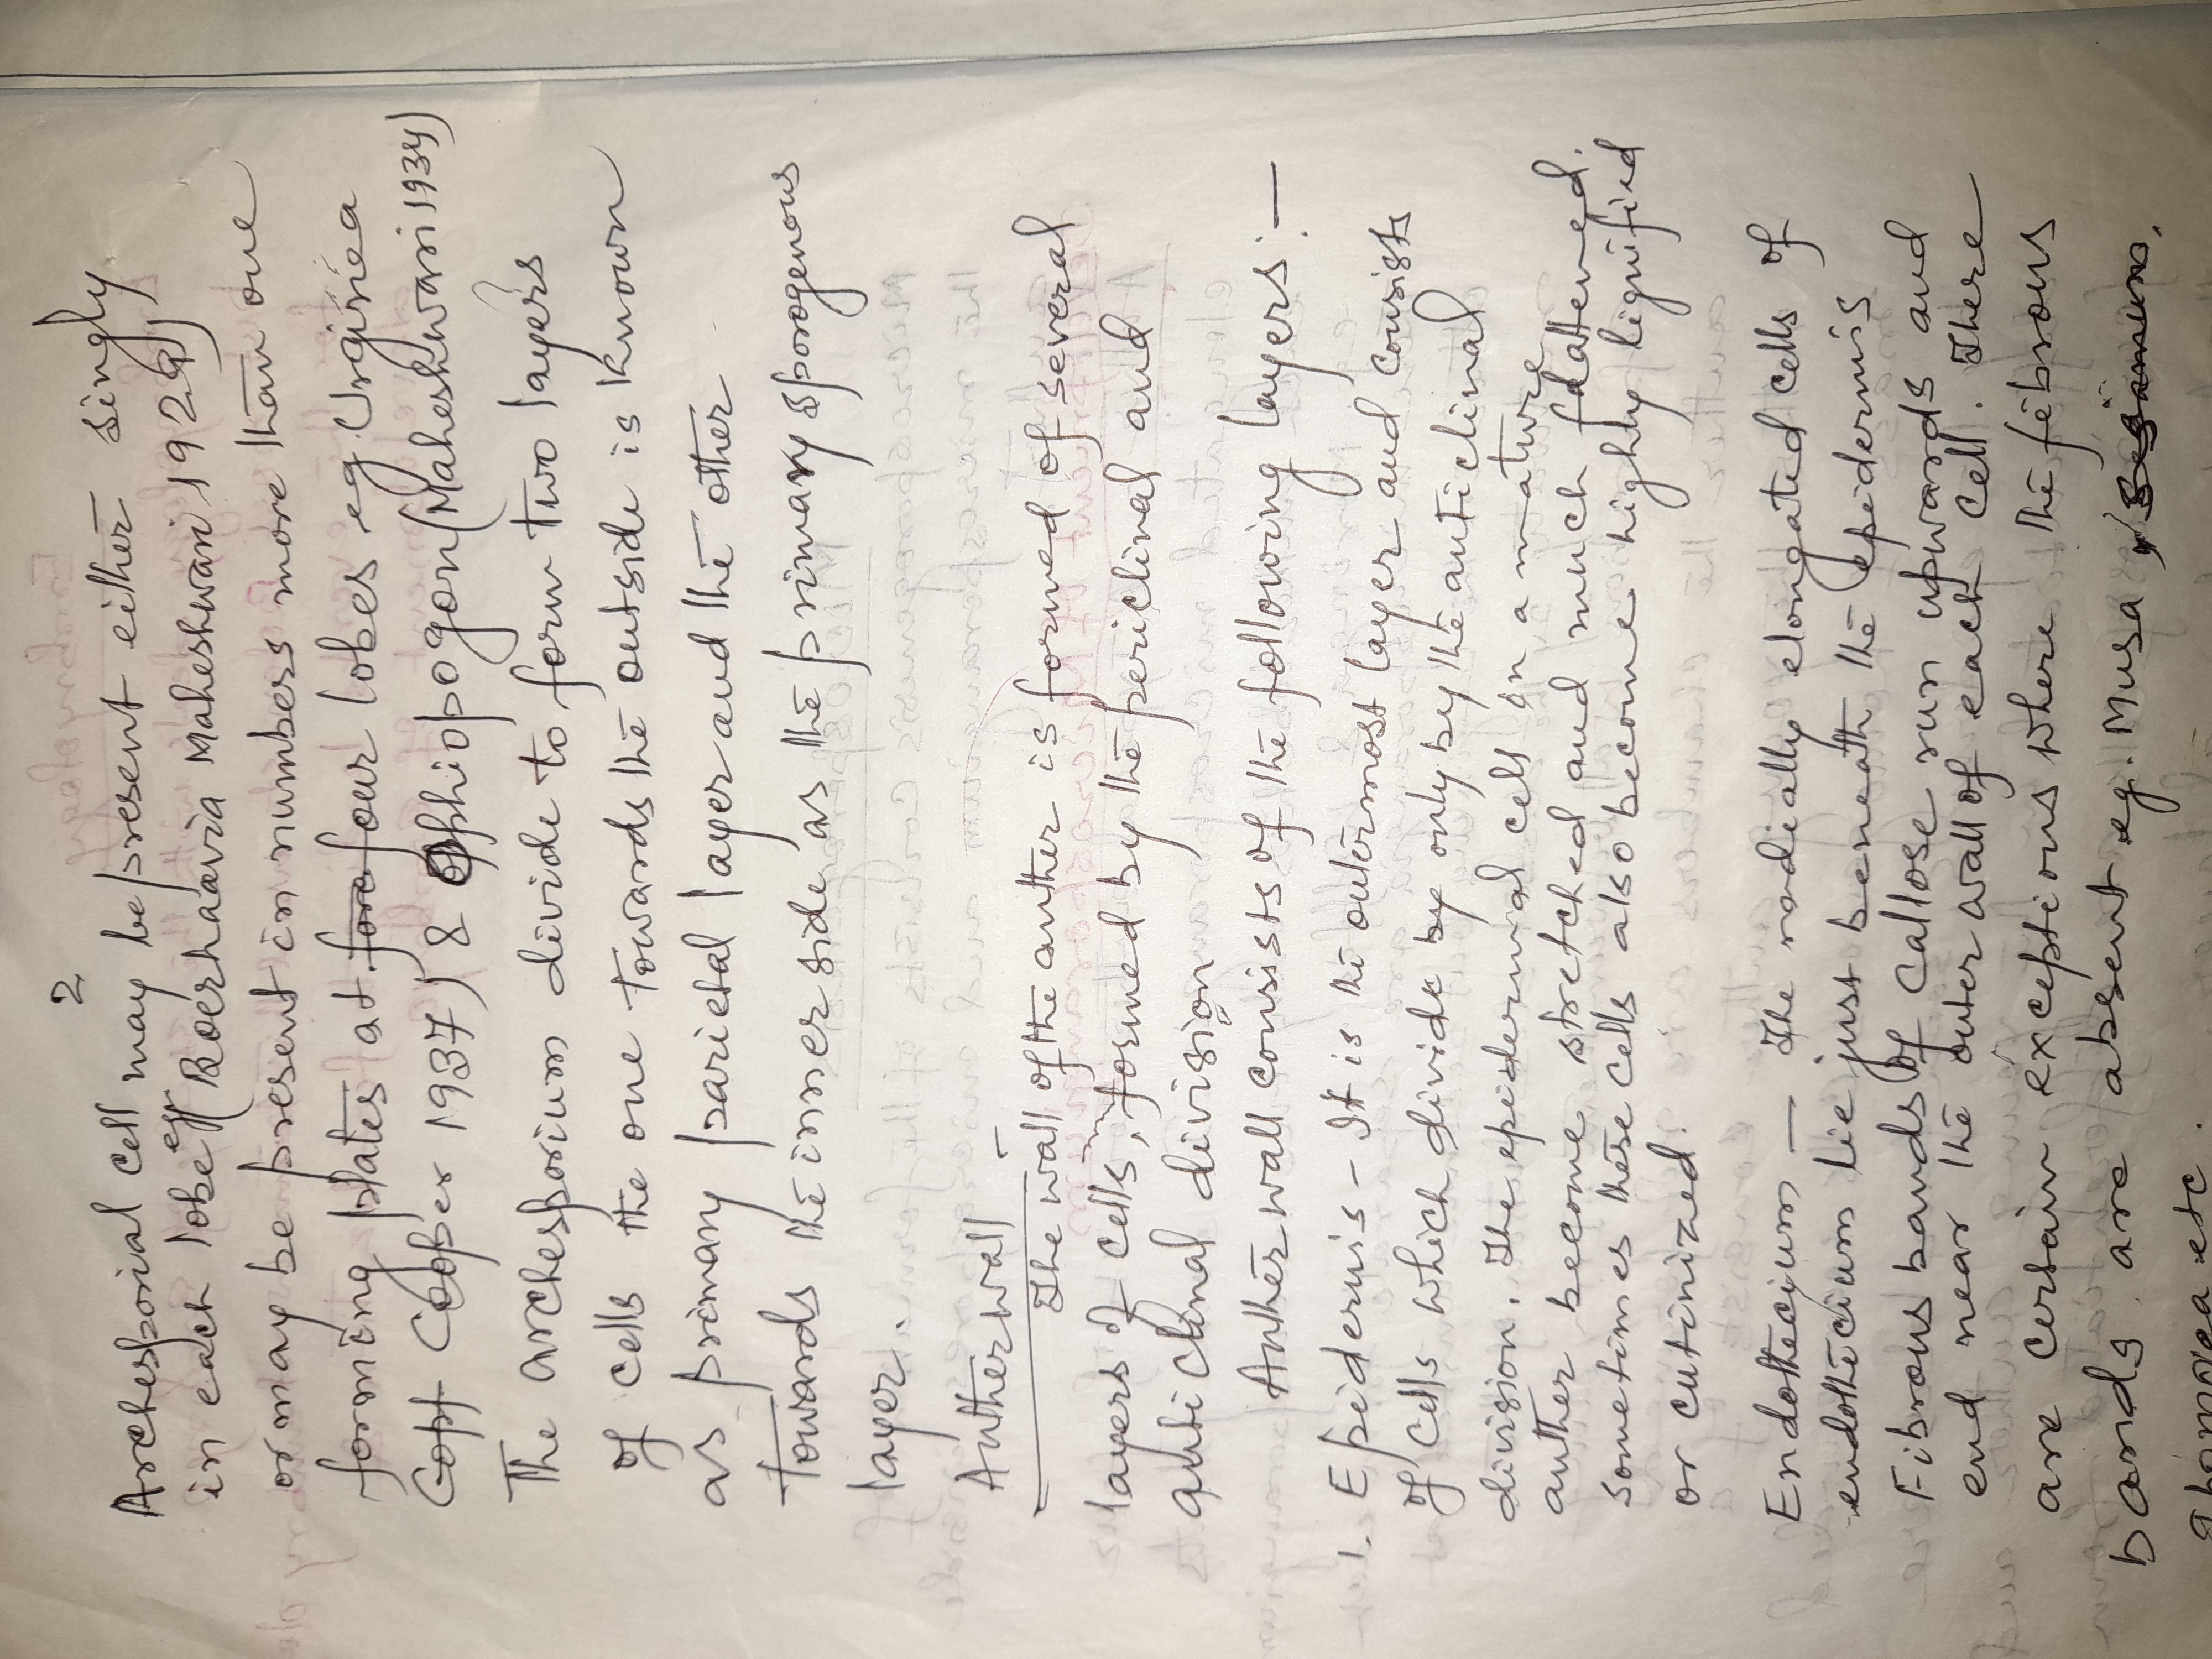 2
Archesporial cell may be present either singly
in each lobe eg Boerhaavia Maheshwari 1929)
or may be present in numbers more than one
forming plates at four lobes eg. Urginea
Cooper 1937) & Ophiopogon (Maheshwari 1934)
The archesporium divide to form two layers
of cells the one towards the outside is known
as primary parietal layer and the other
towards the inner side as the primary sporogenous
layer.
Anther wall -
The wall of the anther is formed of several
layers of cells, formed by the periclinal and
anticlinal division
Anther wall consists of the following layers :-
1. Epidermis - It is the outermost layer and consists
of cells which divide by only by the anticlinal
division. The epidermal cells In a mature
anther become stretched and much flattened.
Sometimes these cells also become highly lignified
or cutinized.
Endothecium - The radially elongated cells of
endothecium lie just beneath the epidermis
Fibrous bands of callose run upwards and
end near the outer wall of each cell. There
are certain exceptions where the fibrous
bands are absent eg. Musa,
Ipomoea etc.